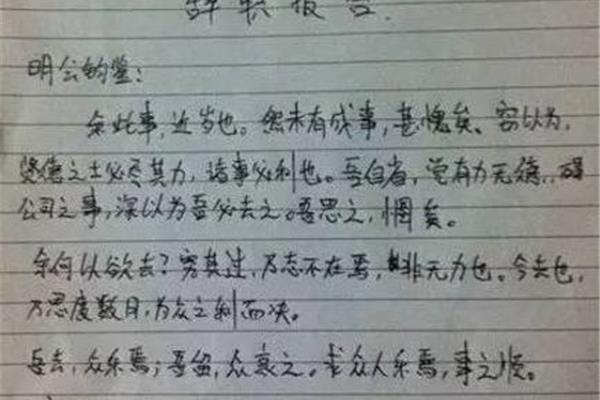 辞职报告.
明公钧鉴：
余此事，近岁也。然未有成事，甚愧矣。窃以为，
贤德之士必尽其力，诸事必利也。吾自省，觉有力无德，碍
公司之事，深以为吾必去之。吾思之，惘矣。
余何以欲去？究其过，乃志不在焉，非无力也。今去也，
乃思度数月，为众之利而决。
吾去，众乐焉；吾留，众哀之。求众人乐焉，事之顺。